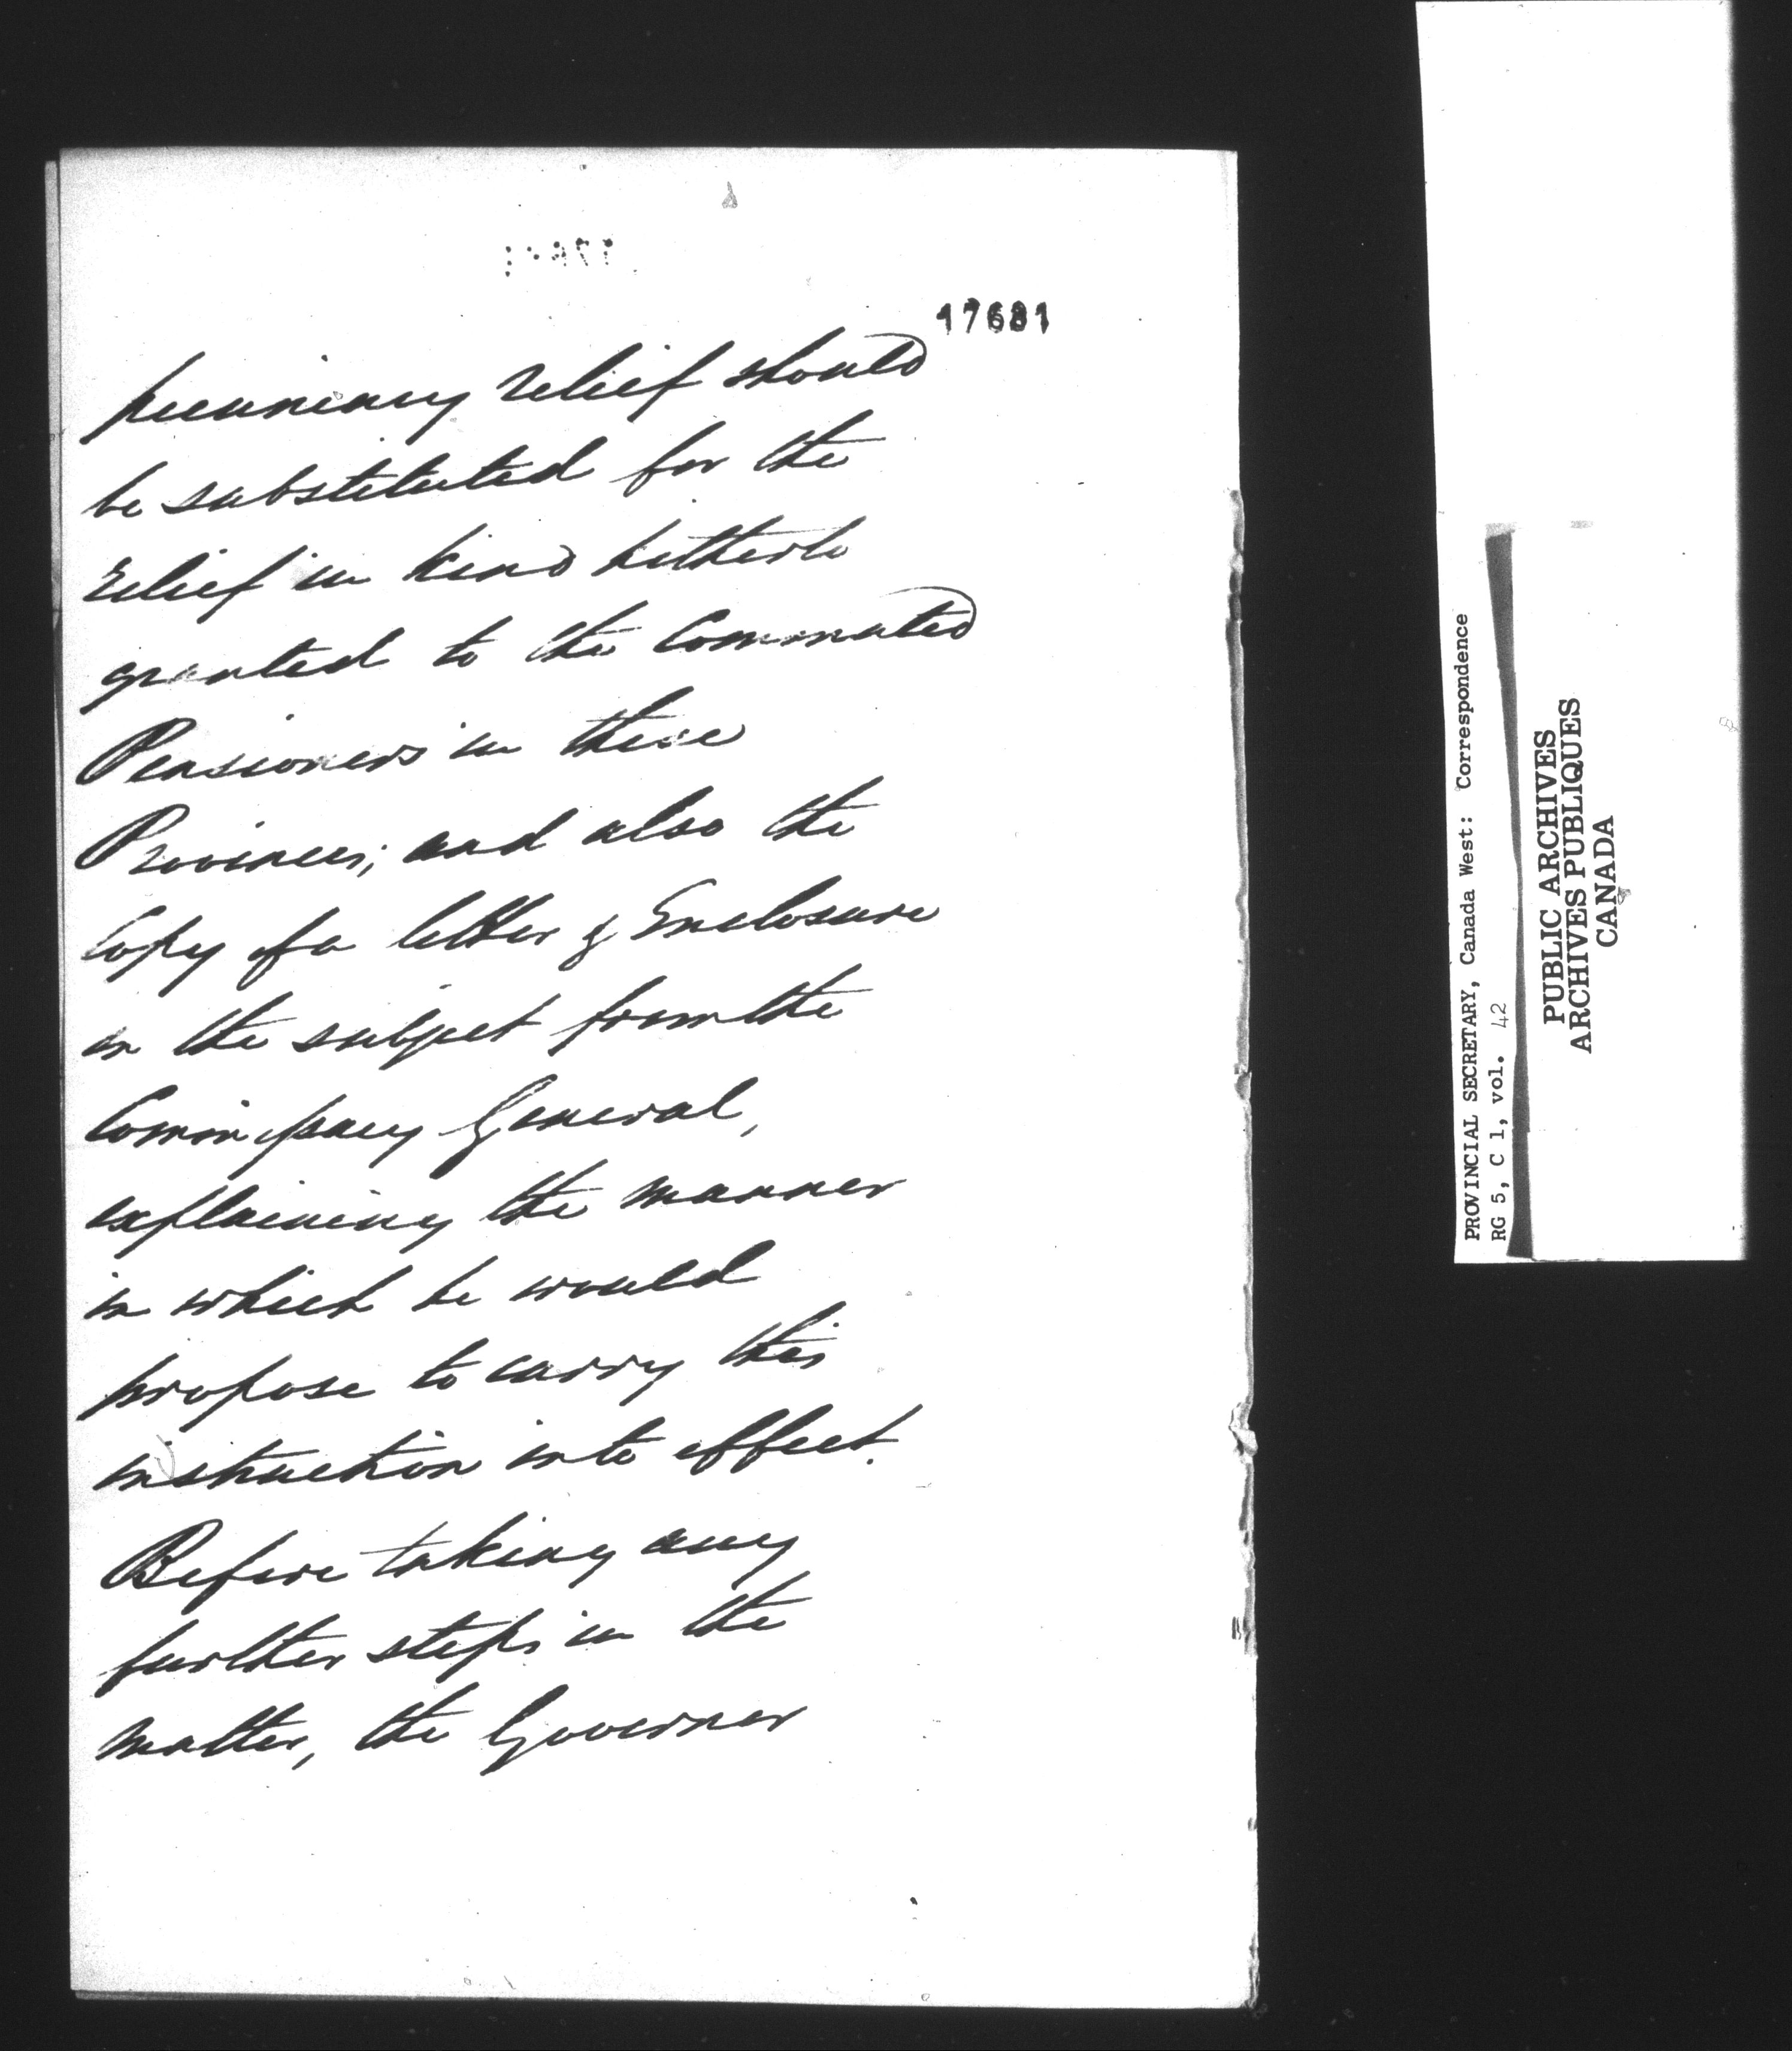 17681
pecuniary relief should
be substituted for the
relief in kind hitherto
granted to the Commuted
Pensioners in these
Provinces; and also the
Copy of a letter & Enclosure
on the subject from the
Commissary General,
explaining the manner
in which he would
propose to carry this
instruction into effect.
Before taking any
further steps in the
matter, the Governor
PROVINCIAL SECRETARY, Canada West: Correspondence
RG 5, C 1, vol. 42
PUBLIC ARCHIVES
ARCHIVES PUBLIQUES
CANADA